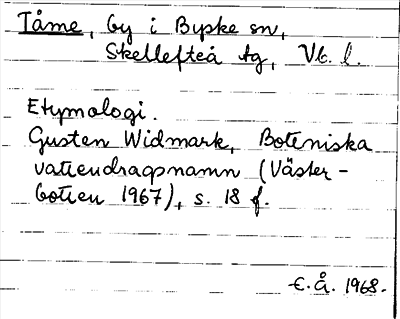 Tåme, by i Byske sn,
Skellefteå tg, Vb. l.
Etymologi.
Gusten Widmark, Boteniska
vattendragsnamn (Väster-
botten 1967), s. 18 f.
E. Å. 1968.